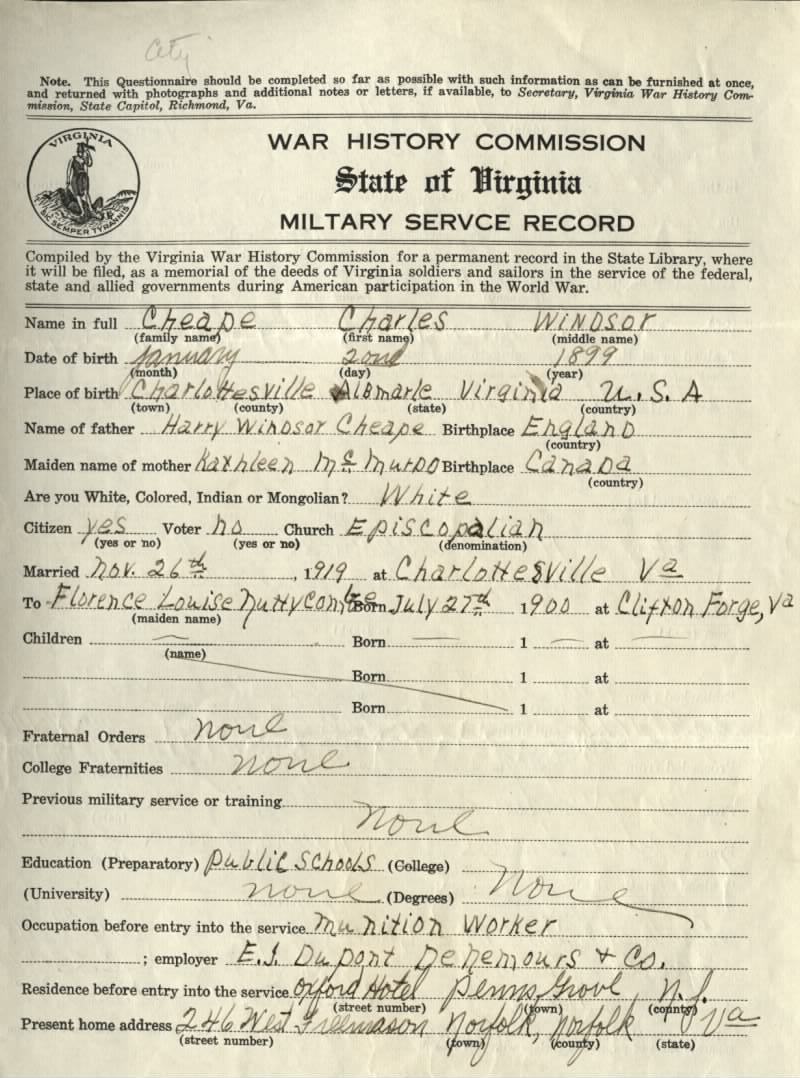 City
Note. This Questionnaire should be completed so far as possible with such information as can be furnished at once,
and returned with photographs and additional notes or letters, if available, to Secretary, Virginia War History Com-
mission, State Capitol, Richmond, Va.
VIRGINIA
SIC SEMPER TYRANNIS
WAR HISTORY COMMISSION
State of Virginia
MILTARY SERVCE RECORD
Compiled by the Virginia War History Commission for a permanent record in the State Library, where
it will be filed, as a memorial of the deeds of Virginia soldiers and sailors in the service of the federal,
state and allied governments during American participation in the World War.
Name in full Cheape Charles Windsor
(family name) (first name) (middle name)
Date of birth January 22nd 1899
(month) (day) (year)
Place of birth Charlottesville Albmarle Virginia U.S.A
(town) (county) (state) (country)
Name of father Harry Windsor Cheape Birthplace England
(country)
Maiden name of mother Kathleen McMurdo Birthplace Canada
(country)
Are you White, Colored, Indian or Mongolian? White
Citizen yes Voter no Church Episcopalian
(yes or no) (yes or no) (denomination)
Married Nov. 26th, 1919 at Charlottesville Va
To Florence Louise Nuttycombe Born July 27th 1900 at Clifton Forge, Va
(maiden name)
Children Born 1 at
(name)
Born 1 at
Born 1 at
Fraternal Orders None
College Fraternities None
Previous military service or training
None
Education (Preparatory) Public Schools (College)
(University) None (Degrees) None
Occupation before entry into the service Munition Worker
; employer E.I. Dupont DeNemours & Co.
Residence before entry into the service Oxford Hotel Penns Grove, N.J.
(street number) (town) (county)
Present home address 246 West Freemason Norfolk, Norfolk Va
(street number) (town) (county) (state)